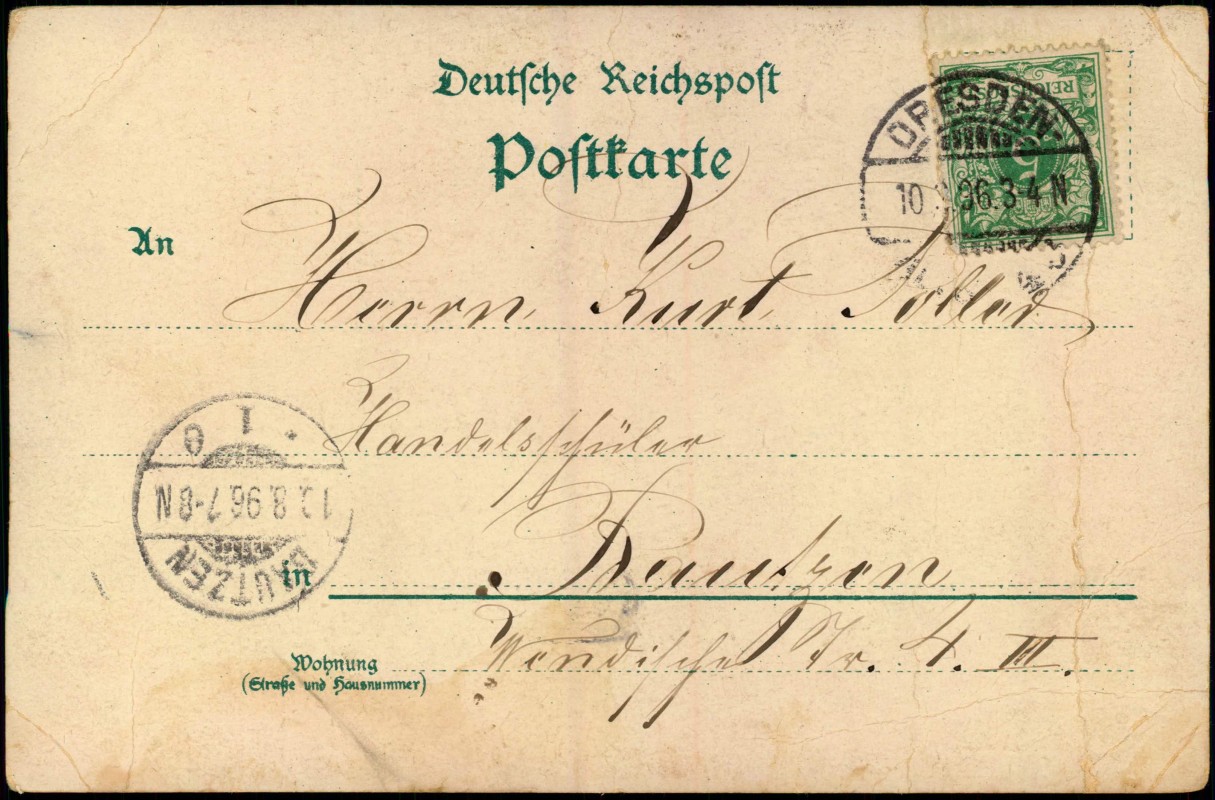 Deutsche Reichspost
Postkarte
REICHSPOST
5
DRESDEN-
10 8.96.3-4N
An Herrn Kurt Toller
Handelsschüler
in Bautzen
Wendische Str. 4. III.
Wohnung
(Straße und Hausnummer)
BAUTZEN
10.8.96.7-8N.
* 1 c